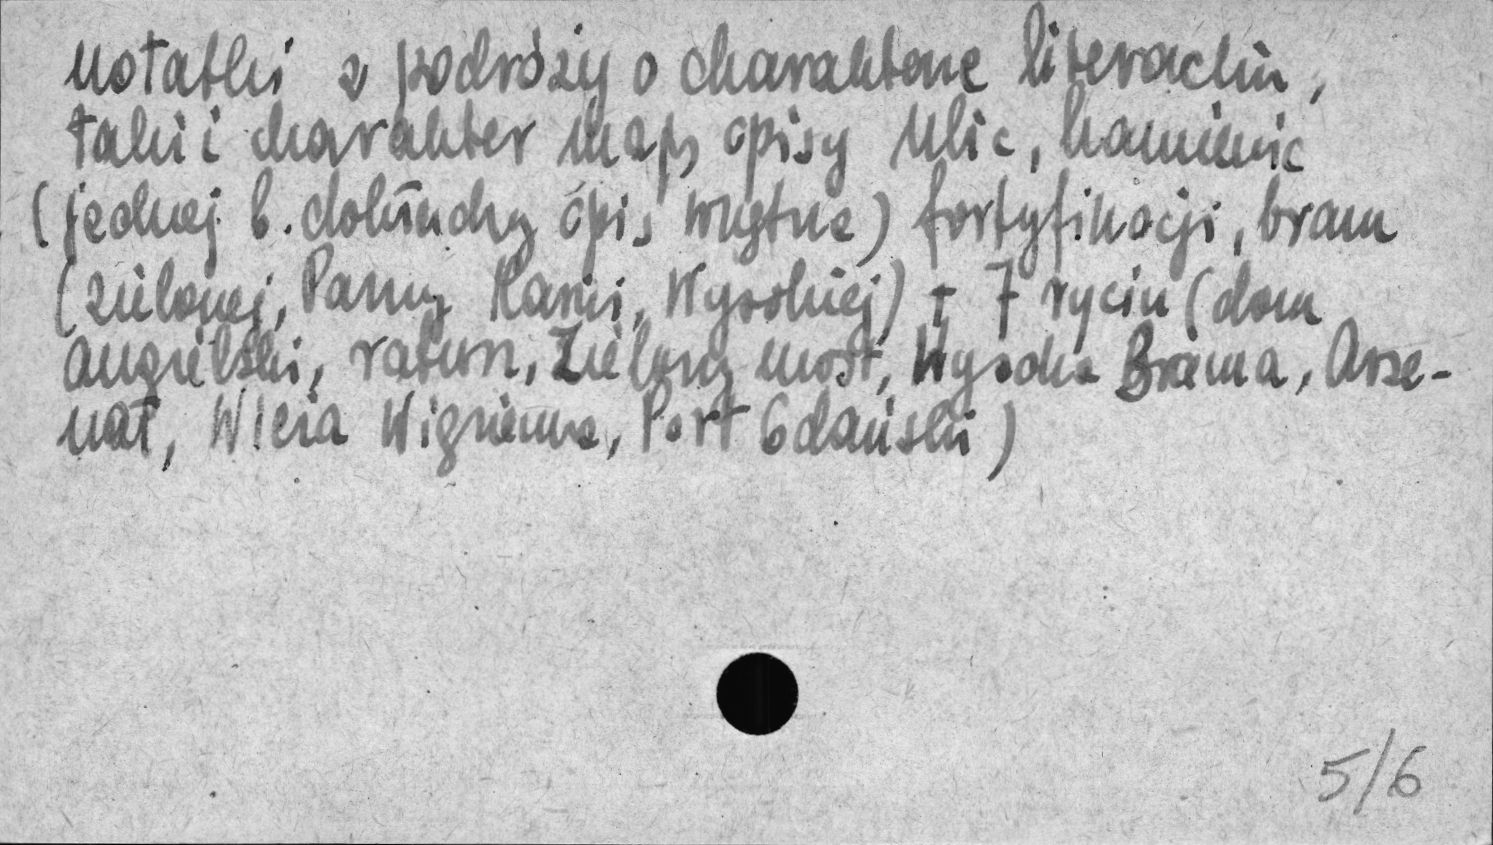 notatki z podróży o charakterze literackim,
taki i charakter mają opisy ulic, kamienic
(jednej b. dokładny opis wnętrza) fortyfikacji, bram
(zielonej, Panny Marii, Wysokiej) + 7 rycin (dom
angielski, ratusz, Zielony most, Wysoka Brama, Arse-
nał, Wieża Więzienna, Port Gdański)
5/6